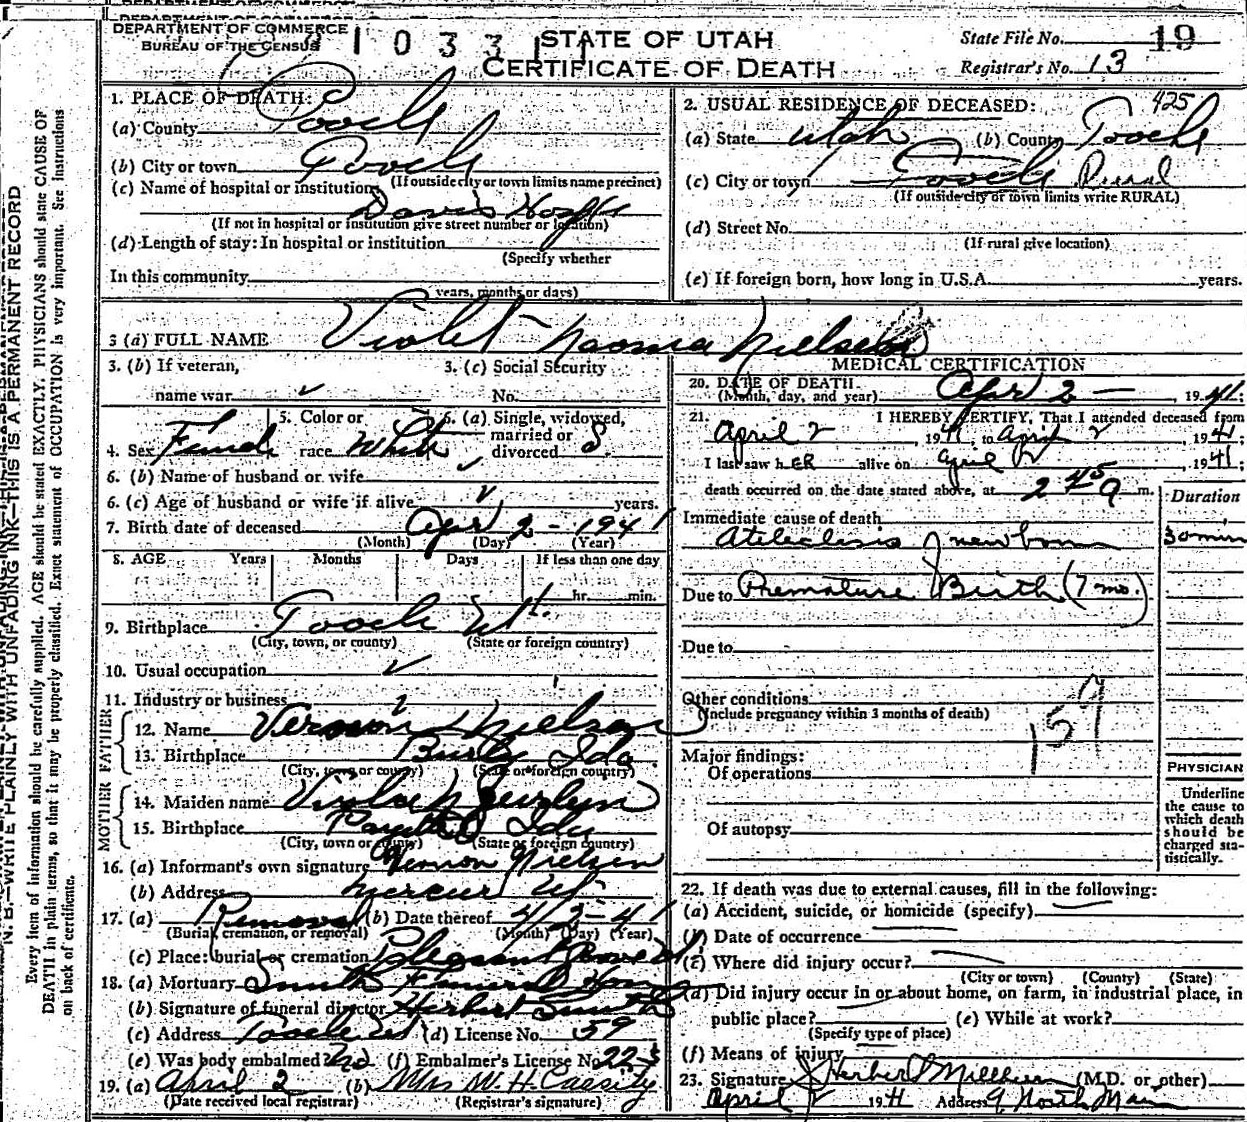 DEPARTMENT OF COMMERCE
BUREAU OF THE CENSUS
STATE OF UTAH
CERTIFICATE OF DEATH
State File No. 19
Registrar's No. 13
1. PLACE OF DEATH:
(a) County Tooele
(b) City or town Tooele
(If outside city or town limits name precinct)
(c) Name of hospital or institution
Davis Hosp
(If not in hospital or institution give street number or location)
(d) Length of stay: In hospital or institution
(Specify whether
In this community
years, months or days)
2. USUAL RESIDENCE OF DECEASED: 425
(a) State Utah (b) County Tooele
(c) City or town Tooele Rural
(If outside city or town limits write RURAL)
(d) Street No.
(If rural give location)
(e) If foreign born, how long in U.S.A. years.
3 (a) FULL NAME Violet Naoma Nielsen
3. (b) If veteran,
name war
3. (c) Social Security
No.
4. Sex Female
5. Color or
race White
6. (a) Single, widowed,
married or
divorced S.
6. (b) Name of husband or wife
6. (c) Age of husband or wife if alive years.
7. Birth date of deceased Apr 2 - 1941
(Month) (Day) (Year)
8. AGE Years Months Days If less than one day
hr. min.
9. Birthplace Tooele Ut.
(City, town, or county) (State or foreign country)
10. Usual occupation
11. Industry or business
FATHER
12. Name Vernon Nielsen
13. Birthplace Burley Ida
(City, town or county) (State or foreign country)
MOTHER
14. Maiden name
15. Birthplace Payette Ida
(City, town or county) (State or foreign country)
16. (a) Informant's own signature Vernon Nielsen
(b) Address Mercur Ut
17. (a) Removal (b) Date thereof 4/2-41
(Burial, cremation, or removal) (Month) (Day) (Year)
(c) Place: burial or cremation Pleasant Grove Ut.
18. (a) Mortuary Smith Funeral Home
(b) Signature of funeral director Herbert Smith
(c) Address Tooele Ut (d) License No. 59
(e) Was body embalmed? No (f) Embalmer's License No.
19. (a) April 2 (b) Mrs W. H. Cassity
(Date received local registrar) (Registrar's signature)
MEDICAL CERTIFICATION
20. DATE OF DEATH
(Month, day, and year) Apr 2 - , 1941;
21. I HEREBY CERTIFY, That I attended deceased from
April 2, 1941, to April 2, 1941;
I last saw hER alive on April 2, 1941;
death occurred on the date stated above, at 2 45 a m.
Duration
Immediate cause of death
Atelectasis of newborn 30 min
Due to Premature Birth (7 mo.)
Due to
Other conditions
(Include pregnancy within 3 months of death)
159
Major findings:
Of operations
Of autopsy
PHYSICIAN
Underline
the cause to
which death
should be
charged sta-
tistically.
22. If death was due to external causes, fill in the following:
(a) Accident, suicide, or homicide (specify)
(b) Date of occurrence
(c) Where did injury occur?
(City or town) (County) (State)
(d) Did injury occur in or about home, on farm, in industrial place, in
public place? (e) While at work?
(Specify type of place)
(f) Means of injury
23. Signature J Herbert Millburn (M.D. or other)
April 2 1941 Address 9 North Main
N. B.—WRITE PLAINLY WITH UNFADING INK—THIS IS A PERMANENT RECORD
Every item of information should be carefully supplied. AGE should be stated EXACTLY. PHYSICIANS should state CAUSE OF
DEATH in plain terms, so that it may be properly classified. Exact statement of OCCUPATION is very important. See Instructions
on back of certificate.